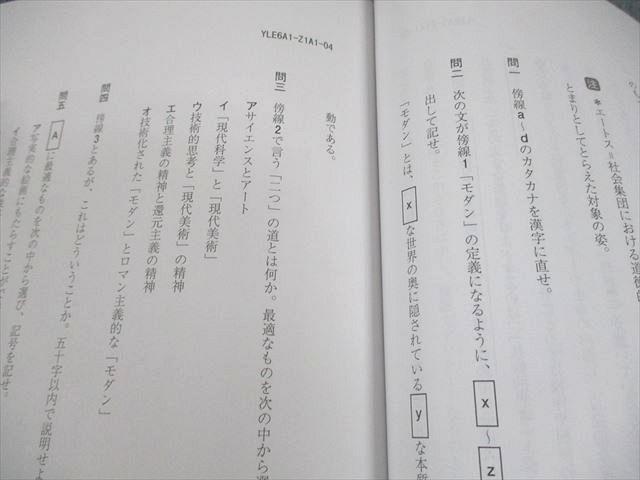 注 *エートス=社会集団における道徳
とまりとしてとらえた対象の姿。
問一 傍線a~dのカタカナを漢字に直せ。
問二 次の文が傍線1「モダン」の定義になるように、x~z
出して記せ。
「モダン」とは、xな世界の奥に隠されているyな本質
YLE6A1-Z1A1-04
動である。
問三 傍線2で言う「二つ」の道とは何か。最適なものを次の中から選
アサイエンスとアート
イ「現代科学」と「現代美術」
ウ技術的思考と「現代美術」の精神
エ合理主義の精神と還元主義の精神
オ技術化された「モダン」とロマン主義的な「モダン」
問四 傍線3とあるが、これはどういうことか。五十字以内で説明せよ
問五 Aに最適なものを次の中から選び、記号を記せ。
ア写実的な絵画にもたらすことがで
イ合理主義的な